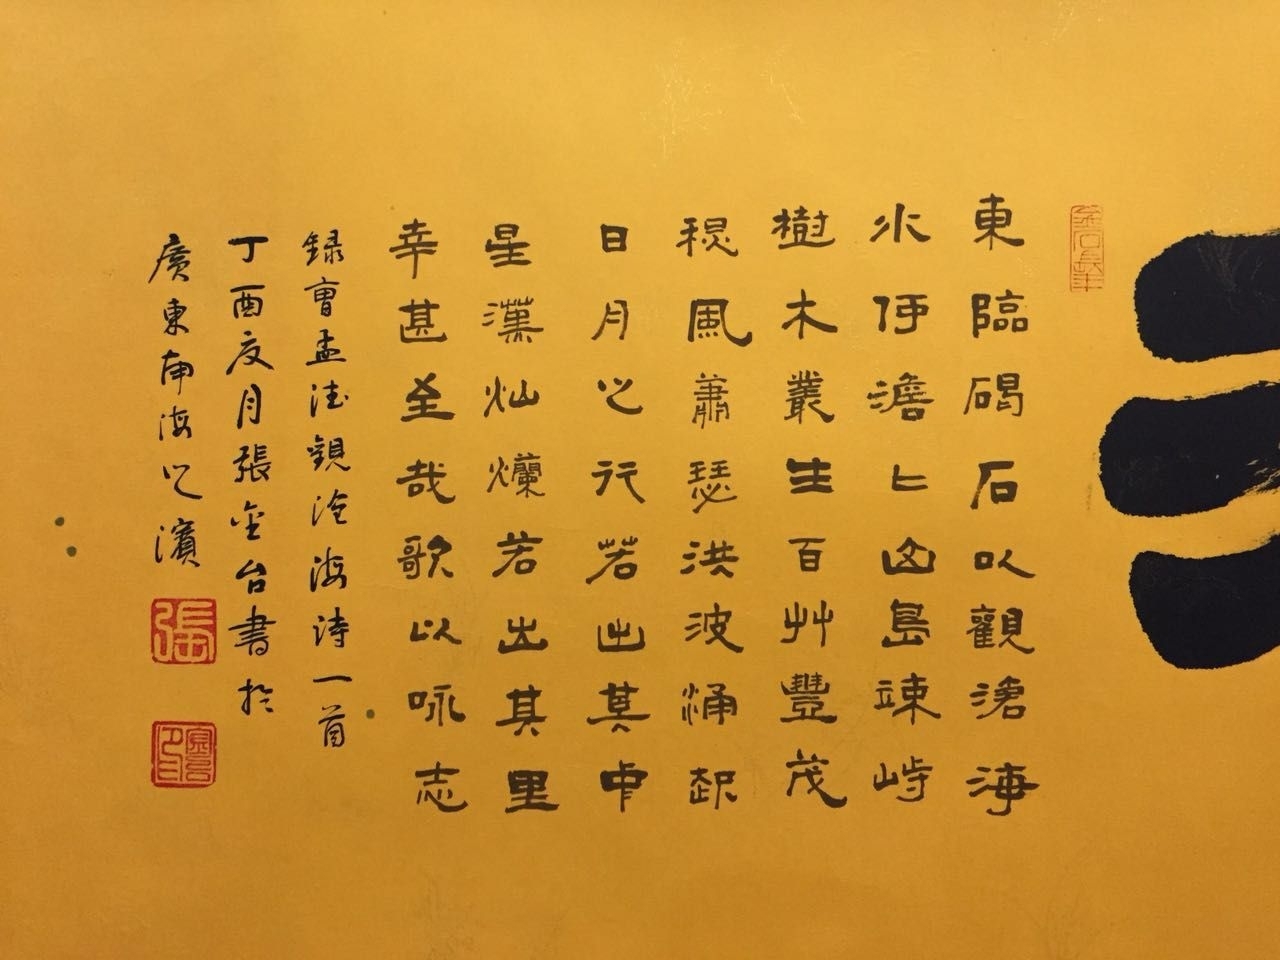 東臨碣石以觀滄海
水何澹〻山島竦峙
樹木叢生百艸豐茂
秋風蕭瑟洪波涌起
日月之行若出其中
星漢灿爛若出其里
幸甚至哉歌以咏志
録曹孟德觀滄海詩一首
丁酉夏月張金台書於
廣東南海之濱
張